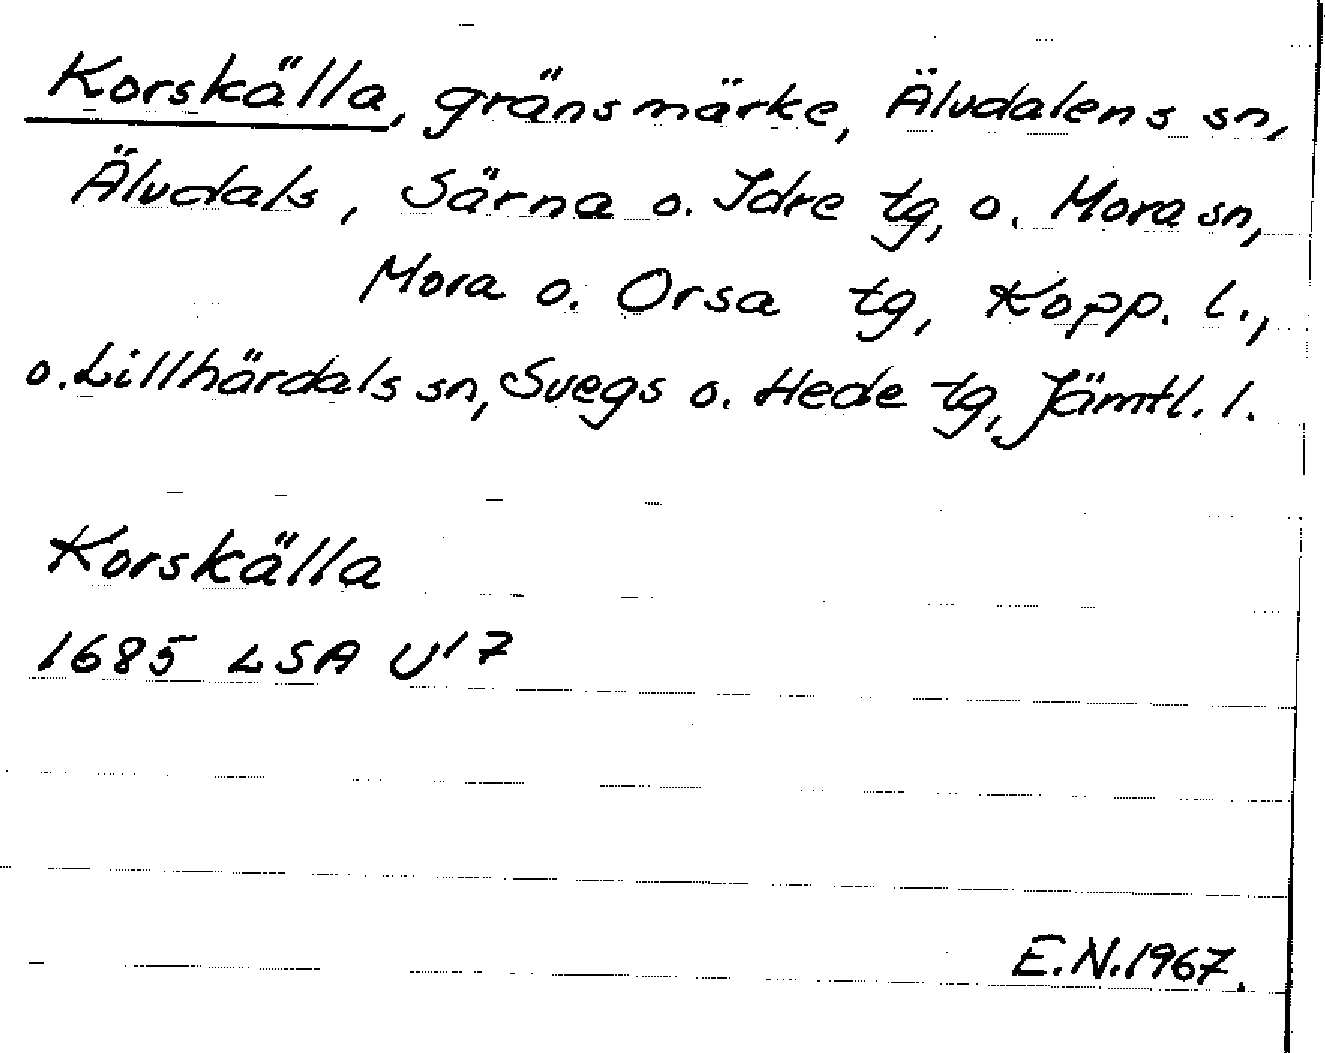 Korskälla, gränsmärke, Älvdalens sn,
Älvdals, Särna o. Idre tg, o. Mora sn,
Mora o. Orsa tg, Kopp. l.,
o. Lillhärdals sn, Svegs o. Hede tg, Jämtl. l.
Korskälla
1685 LSA U17
E.N. 1967.